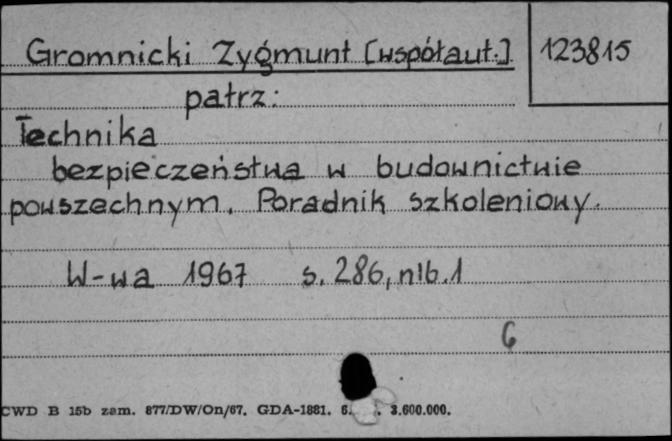 Gromnicki Zygmunt [współaut.] 123815
patrz:
Technika
bezpieczeństwa w budownictwie
powszechnym. Poradnik szkoleniowy.
W-wa 1967 s. 286, nlb. 1
6
CWD B 15b zam. 877/DW/On/67. GDA-1881. 6. . 3.600.000.